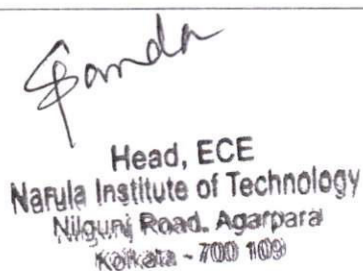 Head, ECE
Narula Institute of Technology
Nilgunj Road. Agarpara
Kolkata - 700 109